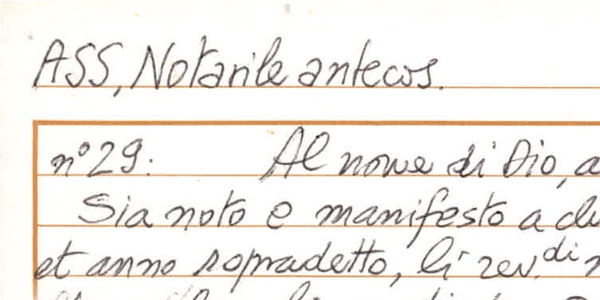 ASS, Notarile antecos.
n° 29. Al nome di Dio, a
Sia noto e manifesto a
et anno sopradetto, li rev.di